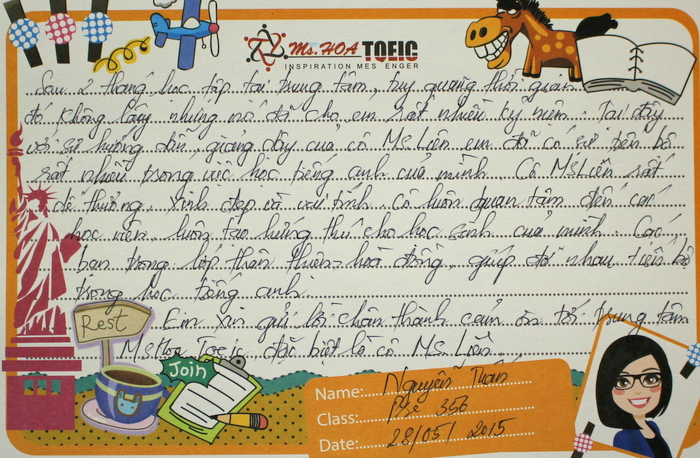 Ms. HOA TOEIC
INSPIRATION MESSENGER
Sau 2 tháng học tập tại trung tâm, tuy quãng thời gian
đó không dài nhưng nó đã cho em rất nhiều kỷ niệm. Tại đây
với sự hướng dẫn, giảng dạy của cô Ms Liên em đã có sự tiến bộ
rất nhiều trong việc học tiếng anh của mình. Cô Ms Liên rất
dễ thương. Xinh đẹp và vui tính. Cô luôn quan tâm đến các
học viên luôn tạo hứng thú cho học sinh của mình. Các
bạn trong lớp thân thiện hoà đồng, giúp đỡ nhau tiến bộ
trong học tiếng anh.
Em xin gửi lời chân thành cảm ơn tới trung tâm
Ms Hoa Toeic đặc biệt là cô Ms. Liên.
Rest
Join
Name: Nguyễn Tuấn
Class: Pre 356
Date: 28/05/2015